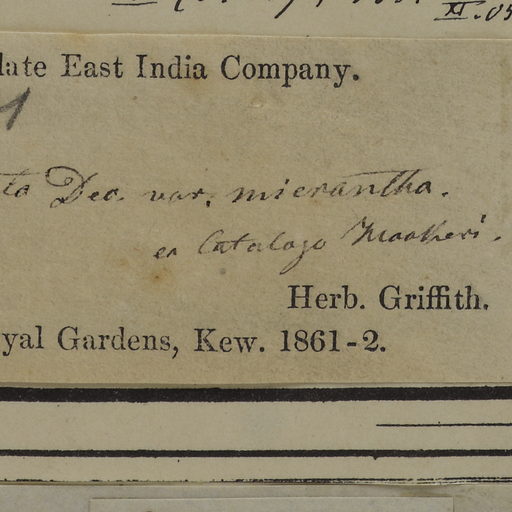 XI.05
late East India Company.
ta Dea. var. micrantha.
ex Catalogo Hookeri.
Herb. Griffith.
yal Gardens, Kew. 1861-2.